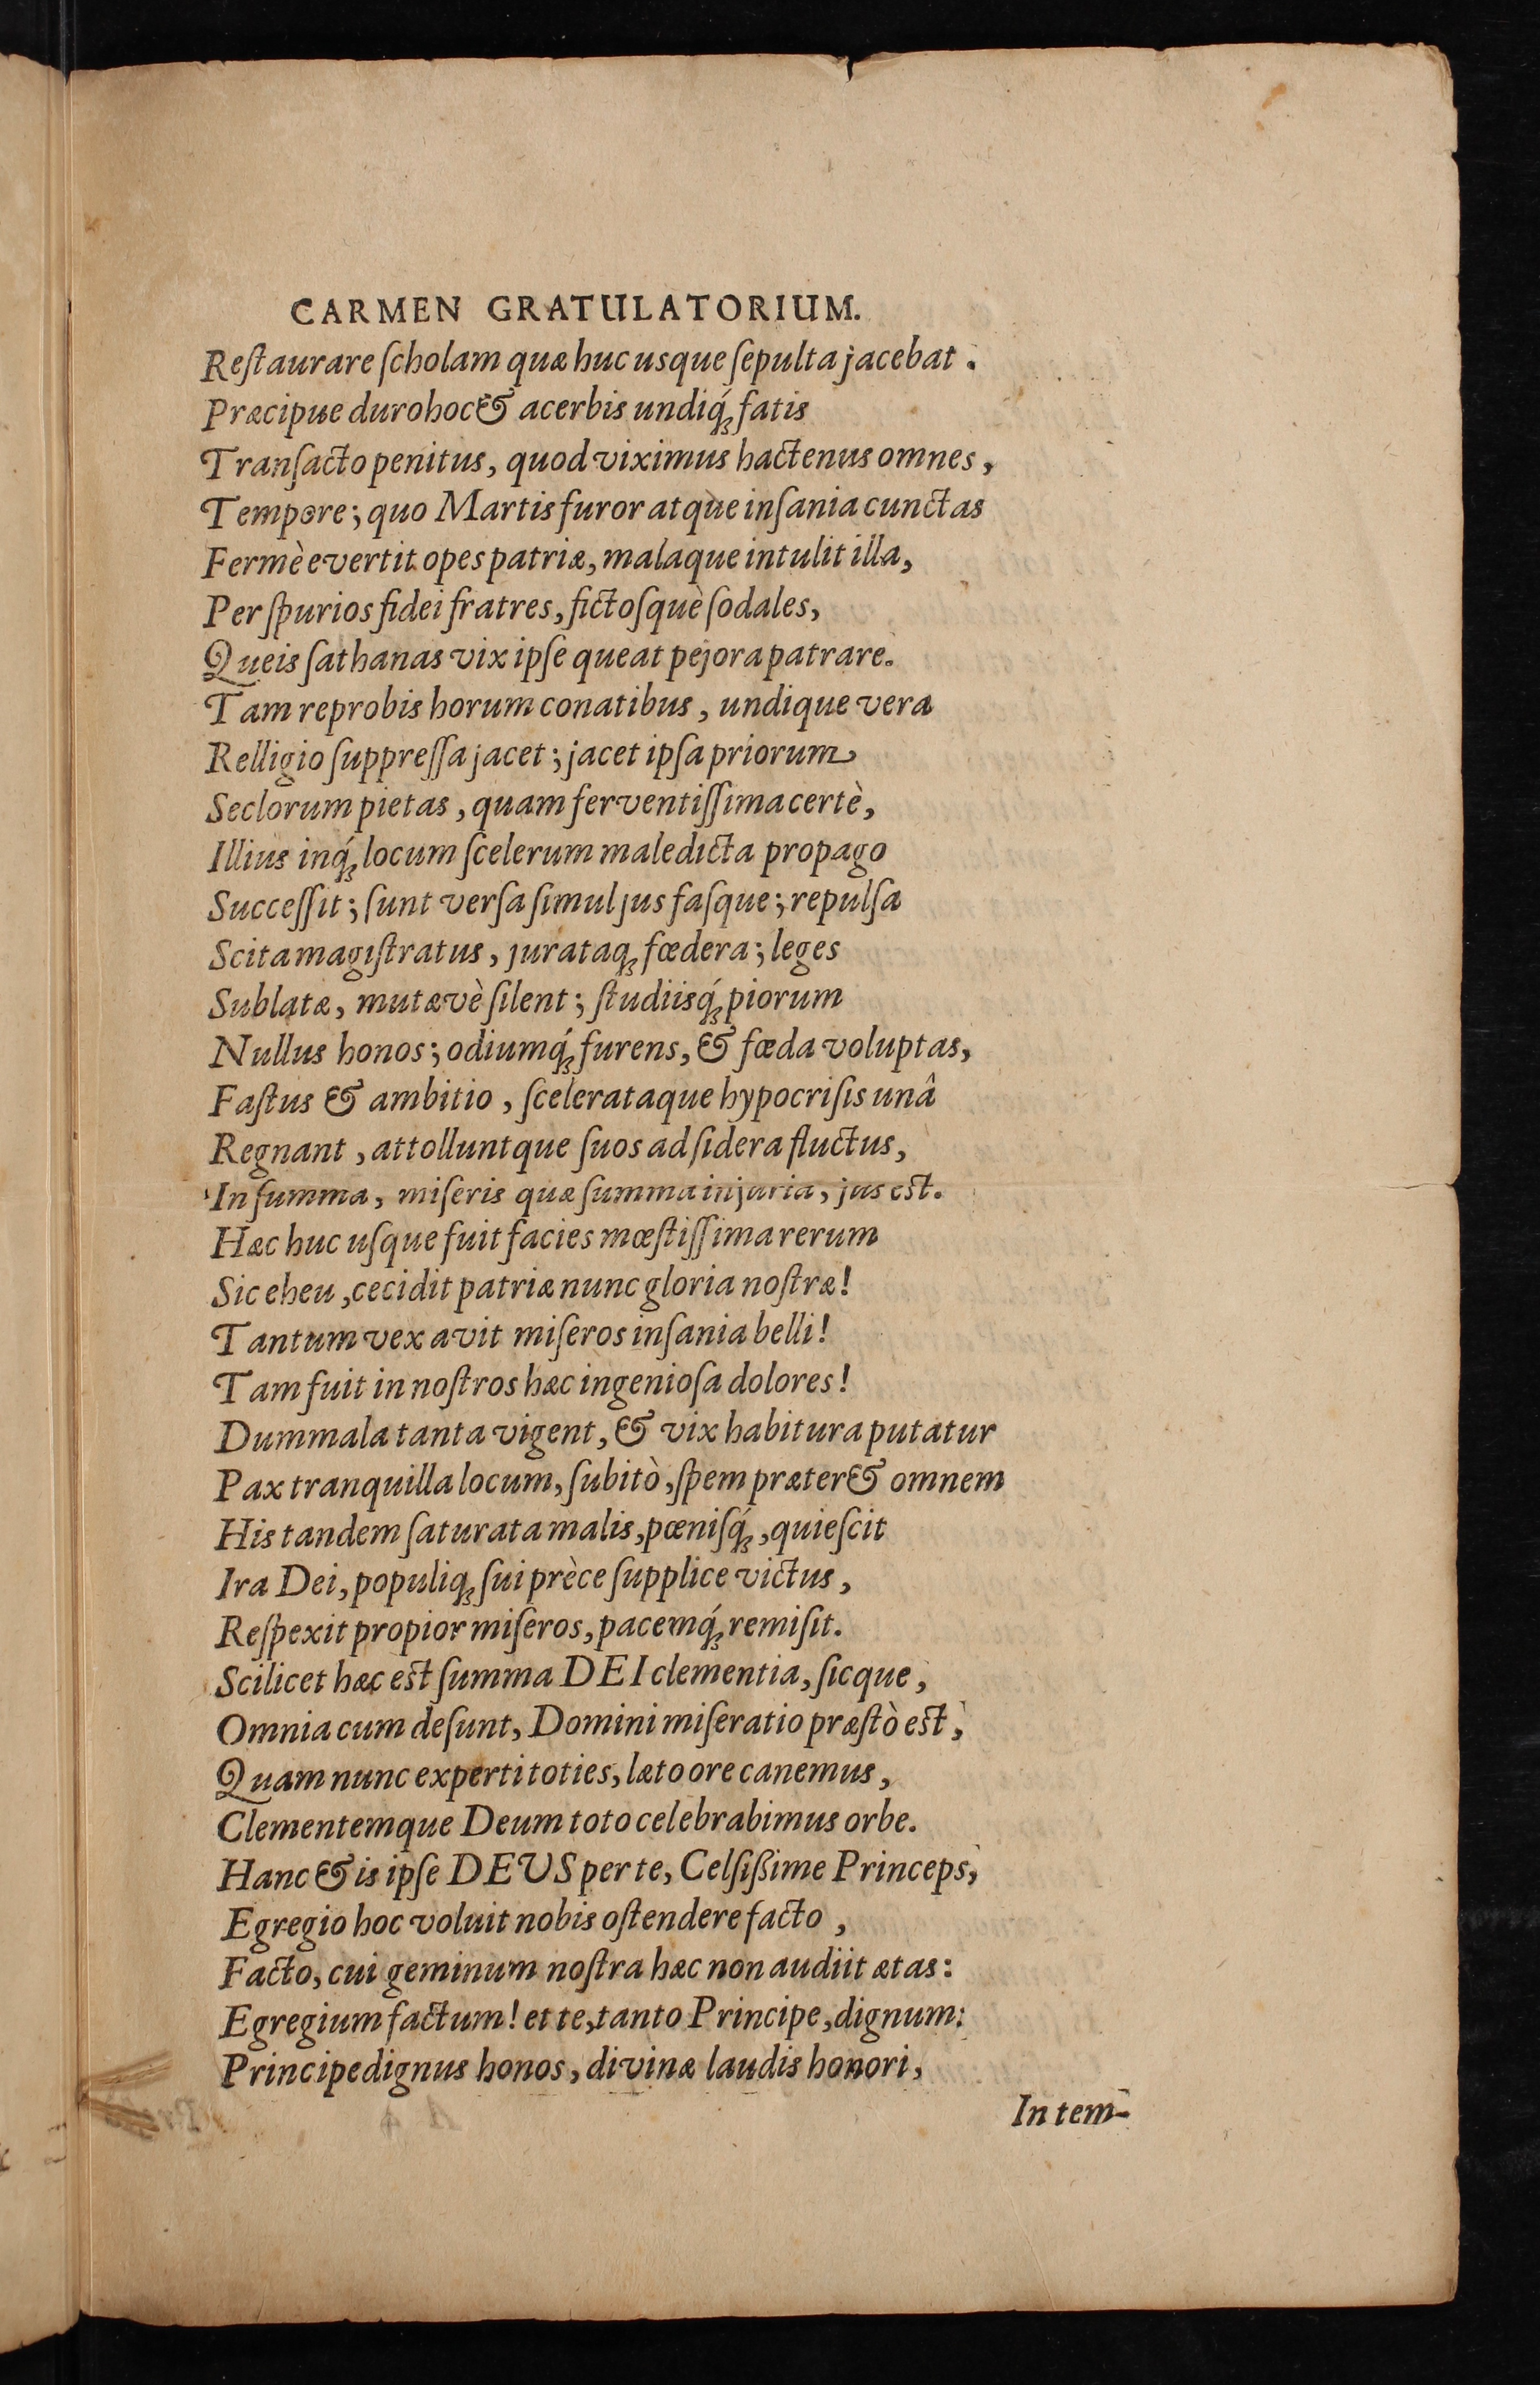 CARMEN GRATULATORIUM.
Reſtaurare ſcholam quæ huc usque ſepulta jacebat.
Præcipue duro hoc & acerbis undiq́ꝫ fatis
Tranſacto penitus, quod viximus hactenus omnes,
Tempore; quo Martis furor atquè inſania cunctas
Fermè evertit opes patriæ, malaque intulit illa,
Per ſpurios fidei fratres, fictoſquè ſodales,
Queis ſathanas vix ipſe queat pejora patrare.
Tam reprobis horum conatibus, undique vera
Relligio ſuppreſſa jacet; jacet ipſa priorum
Seclorum pietas, quam ferventiſſima certè,
Illius inq́ꝫ locum ſcelerum maledicta propago
Succeſſit; ſunt verſa ſimul jus faſque; repulſa
Scita magiſtratus, jurataqꝫ fœdera; leges
Sublatæ, mutævè ſilent; ſtudiisq́ꝫ piorum
Nullus honos; odiumq́ꝫ furens, & fœda voluptas,
Faſtus & ambitio, ſcelerataque hypocriſis unâ
Regnant, attolluntque ſuos ad ſidera fluctus,
In ſumma, miſeris quæ ſumma injuria, jus est.
Hæc huc uſque fuit facies mœſtiſſima rerum
Sic eheu, cecidit patriæ nunc gloria noſtræ!
Tantum vexavit miſeros inſania belli!
Tam fuit in noſtros hæc ingenioſa dolores!
Dum mala tanta vigent, & vix habitura putatur
Pax tranquilla locum, ſubitò, ſpem præter & omnem
His tandem ſaturata malis, pœniſq́ꝫ, quieſcit
Ira Dei, populiqꝫ ſui prèce ſupplice victus,
Reſpexit propior miſeros, pacemq́ꝫ remiſit.
Scilicet hæc est ſumma DEI clementia, ſicque,
Omnia cum deſunt, Domini miſeratio præſtò est,
Quam nunc experti toties, læto ore canemus,
Clementemque Deum toto celebrabimus orbe.
Hanc & is ipſe DEUS per te, Celſißime Princeps,
Egregio hoc voluit nobis oſtendere facto,
Facto, cui geminum noſtra hæc non audiit ætas:
Egregium factum! et te, tanto Principe, dignum:
Principe dignus honos, divinæ laudis honori,
In tem-